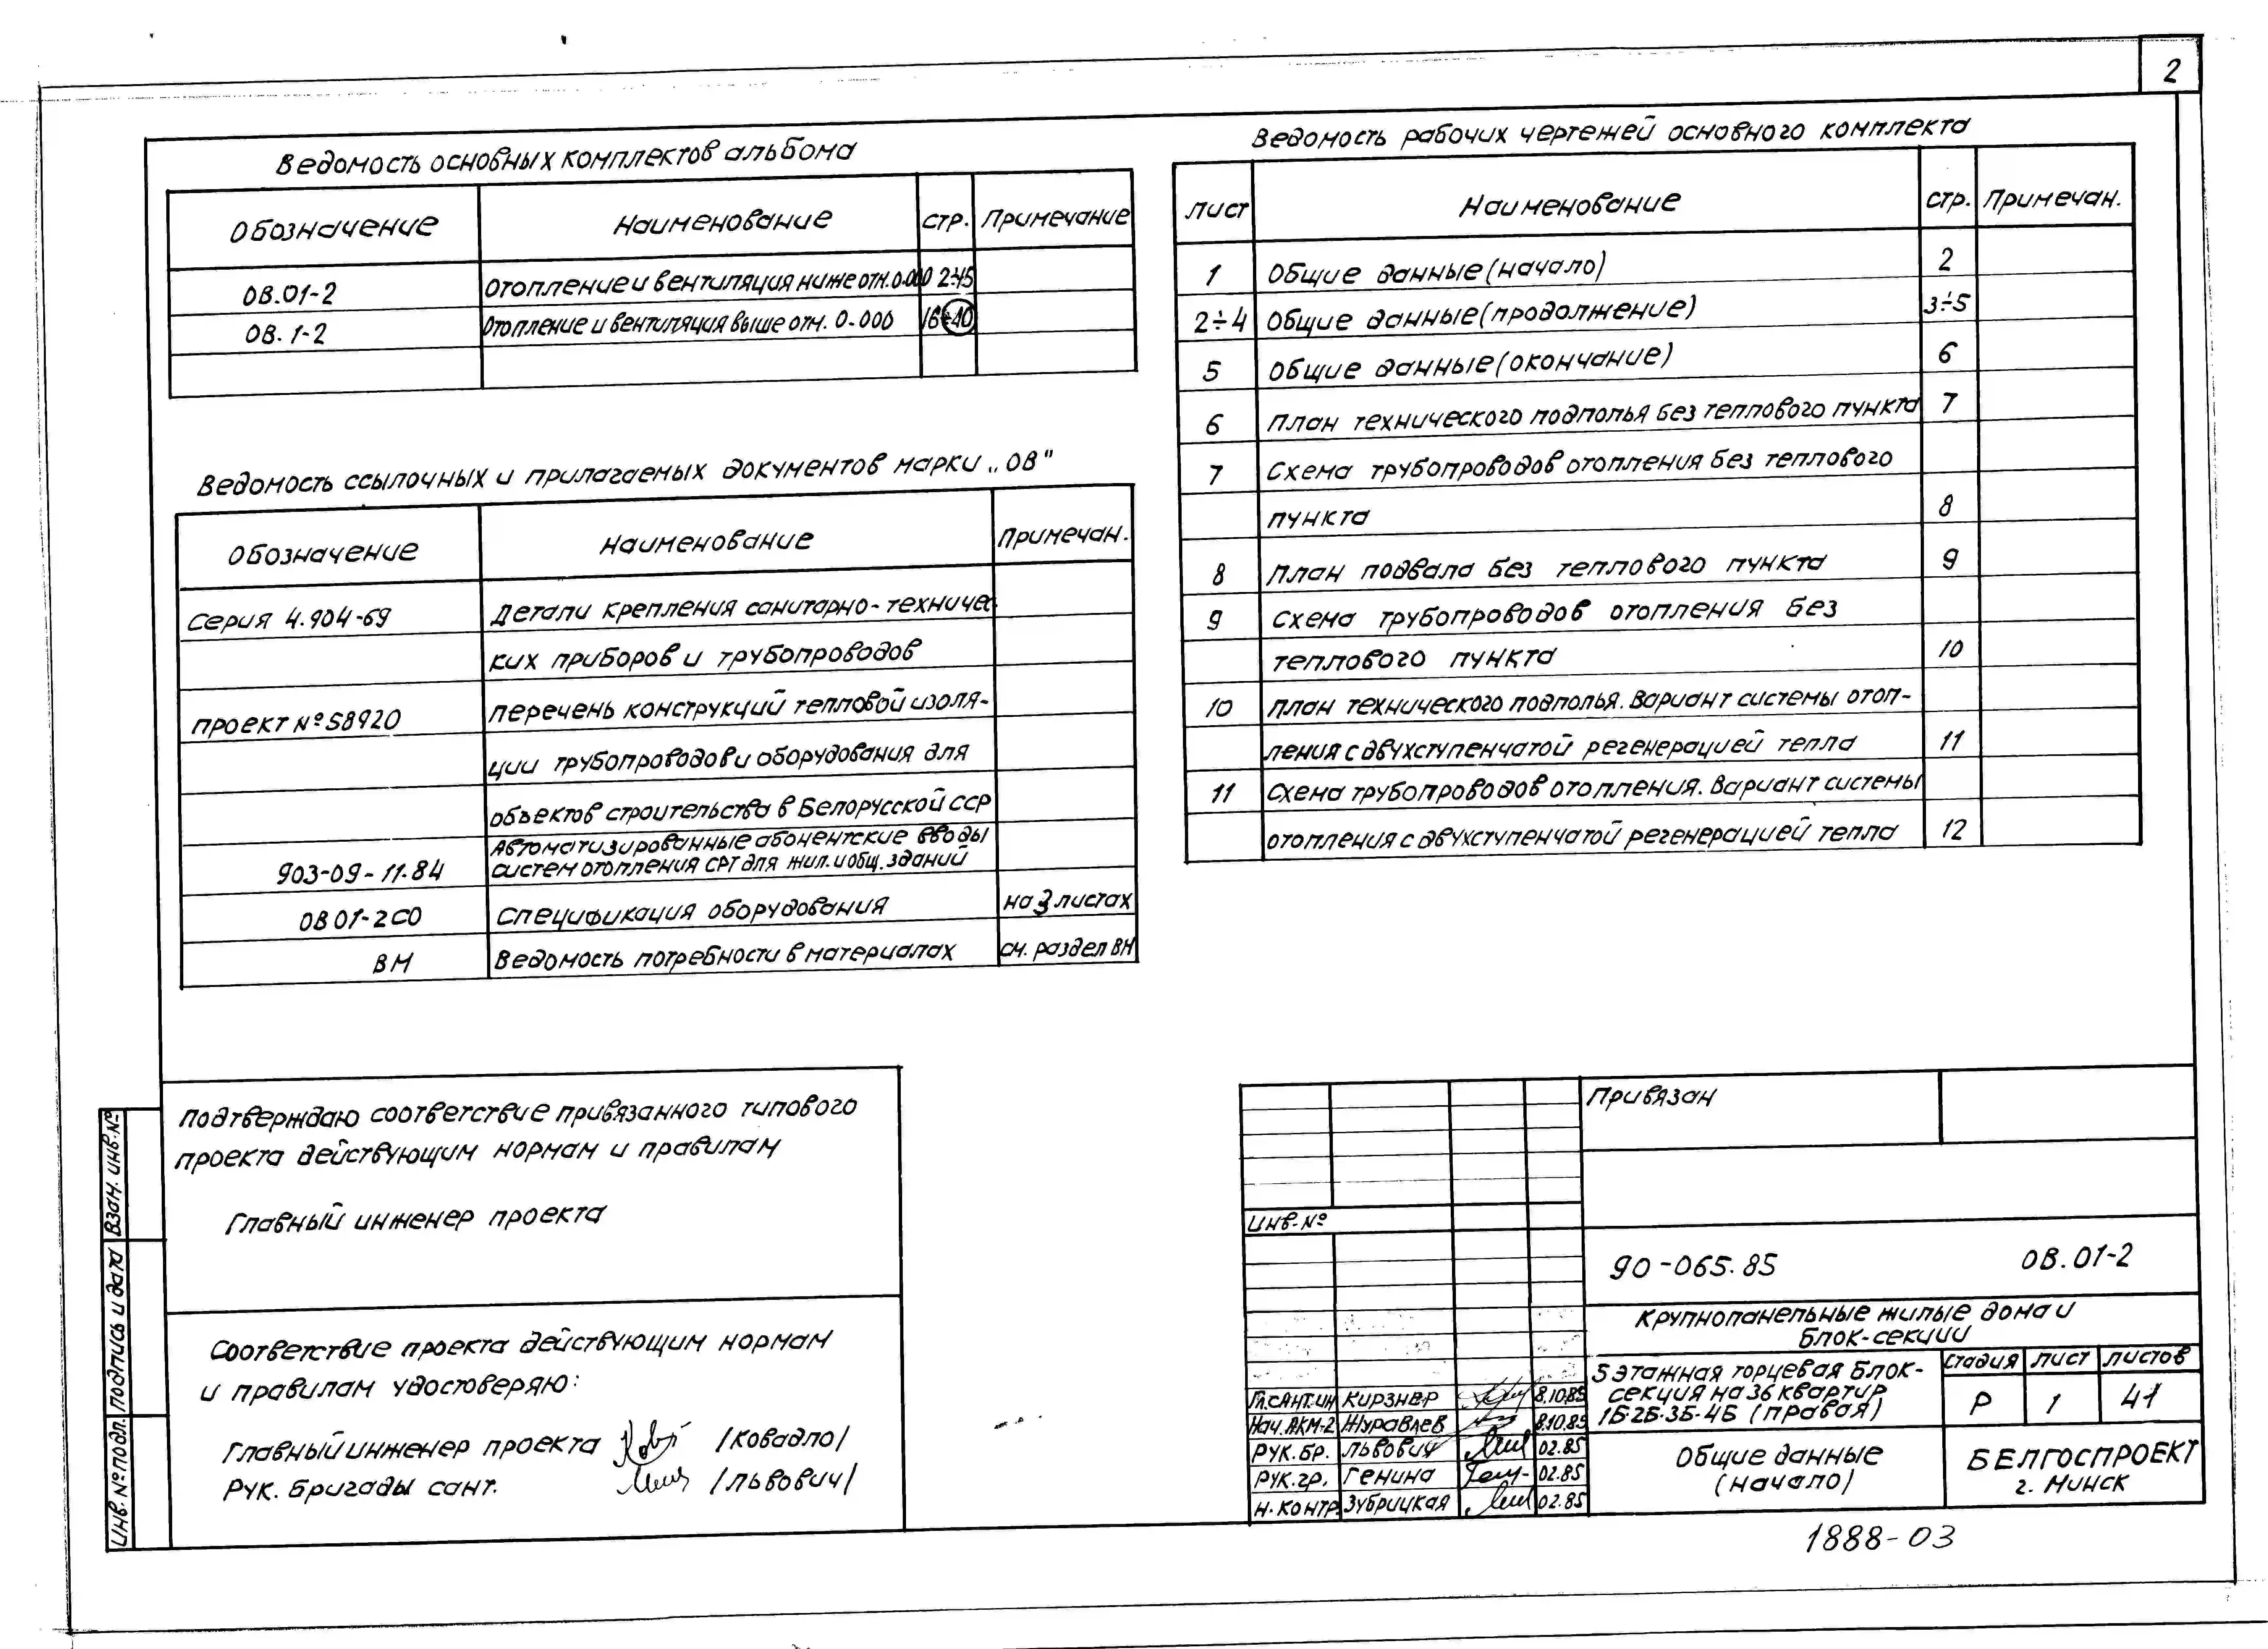 2
Ведомость основных комплектов альбома
Обозначение Наименование стр. Примечание
ОВ.01-2 Отопление и вентиляция ниже отм. 0.000 2÷15
ОВ. 1-2 Отопление и вентиляция выше отм. 0.000 16÷40
Ведомость ссылочных и прилагаемых документов марки „ОВ"
Обозначение Наименование Примечан.
Серия 4.904-69 Детали крепления санитарно-техничес
ких приборов и трубопроводов
проект №58920 перечень конструкций тепловой изоля-
ции трубопроводов и оборудования для
объектов строительства в Белорусской ССР
Автоматизированные абонентские вводы
903-09-11.84 систем отопления СРТ для жил. и общ. зданий
ОВ 01-2СО Спецификация оборудования на 3 листах
ВМ Ведомость потребности в материалах см. раздел ВМ
Ведомость рабочих чертежей основного комплекта
лист Наименование стр. Примечан.
1 Общие данные (начало) 2
2÷4 Общие данные (продолжение) 3÷5
5 Общие данные (окончание) 6
6 План технического подполья без теплового пункта 7
7 Схема трубопроводов отопления без теплового
пункта 8
8 План подвала без теплового пункта 9
9 Схема трубопроводов отопления без
теплового пункта 10
10 План технического подполья. Вариант системы отоп-
ления с двухступенчатой регенерацией тепла 11
11 Схема трубопроводов отопления. Вариант системы
отопления с двухступенчатой регенерацией тепла 12
Подтверждаю соответствие привязанного типового
проекта действующим нормам и правилам
Главный инженер проекта
Соответствие проекта действующим нормам
и правилам удостоверяю:
Главный инженер проекта /Ковадло/
Рук. бригады сант. /Львович/
Инв. № подл. Подпись и дата Взам. инв. №
Привязан
Инв. №
90-065.85 ОВ.01-2
Крупнопанельные жилые дома и
блок-секции
5 этажная торцевая блок-
секция на 36 квартир
1Б-2Б-3Б-4Б (правая)
Стадия лист листов
Р 1 41
Гл.сант.ин Кирзнер 8.10.85
Нач. АКМ-2 Журавлев 8.10.85
Рук. бр. Львович 02.85
Рук. гр. Генина 02.85
Н. контр. Зубрицкая 02.85
Общие данные
(начало)
БЕЛГОСПРОЕКТ
г. Минск
1888-03